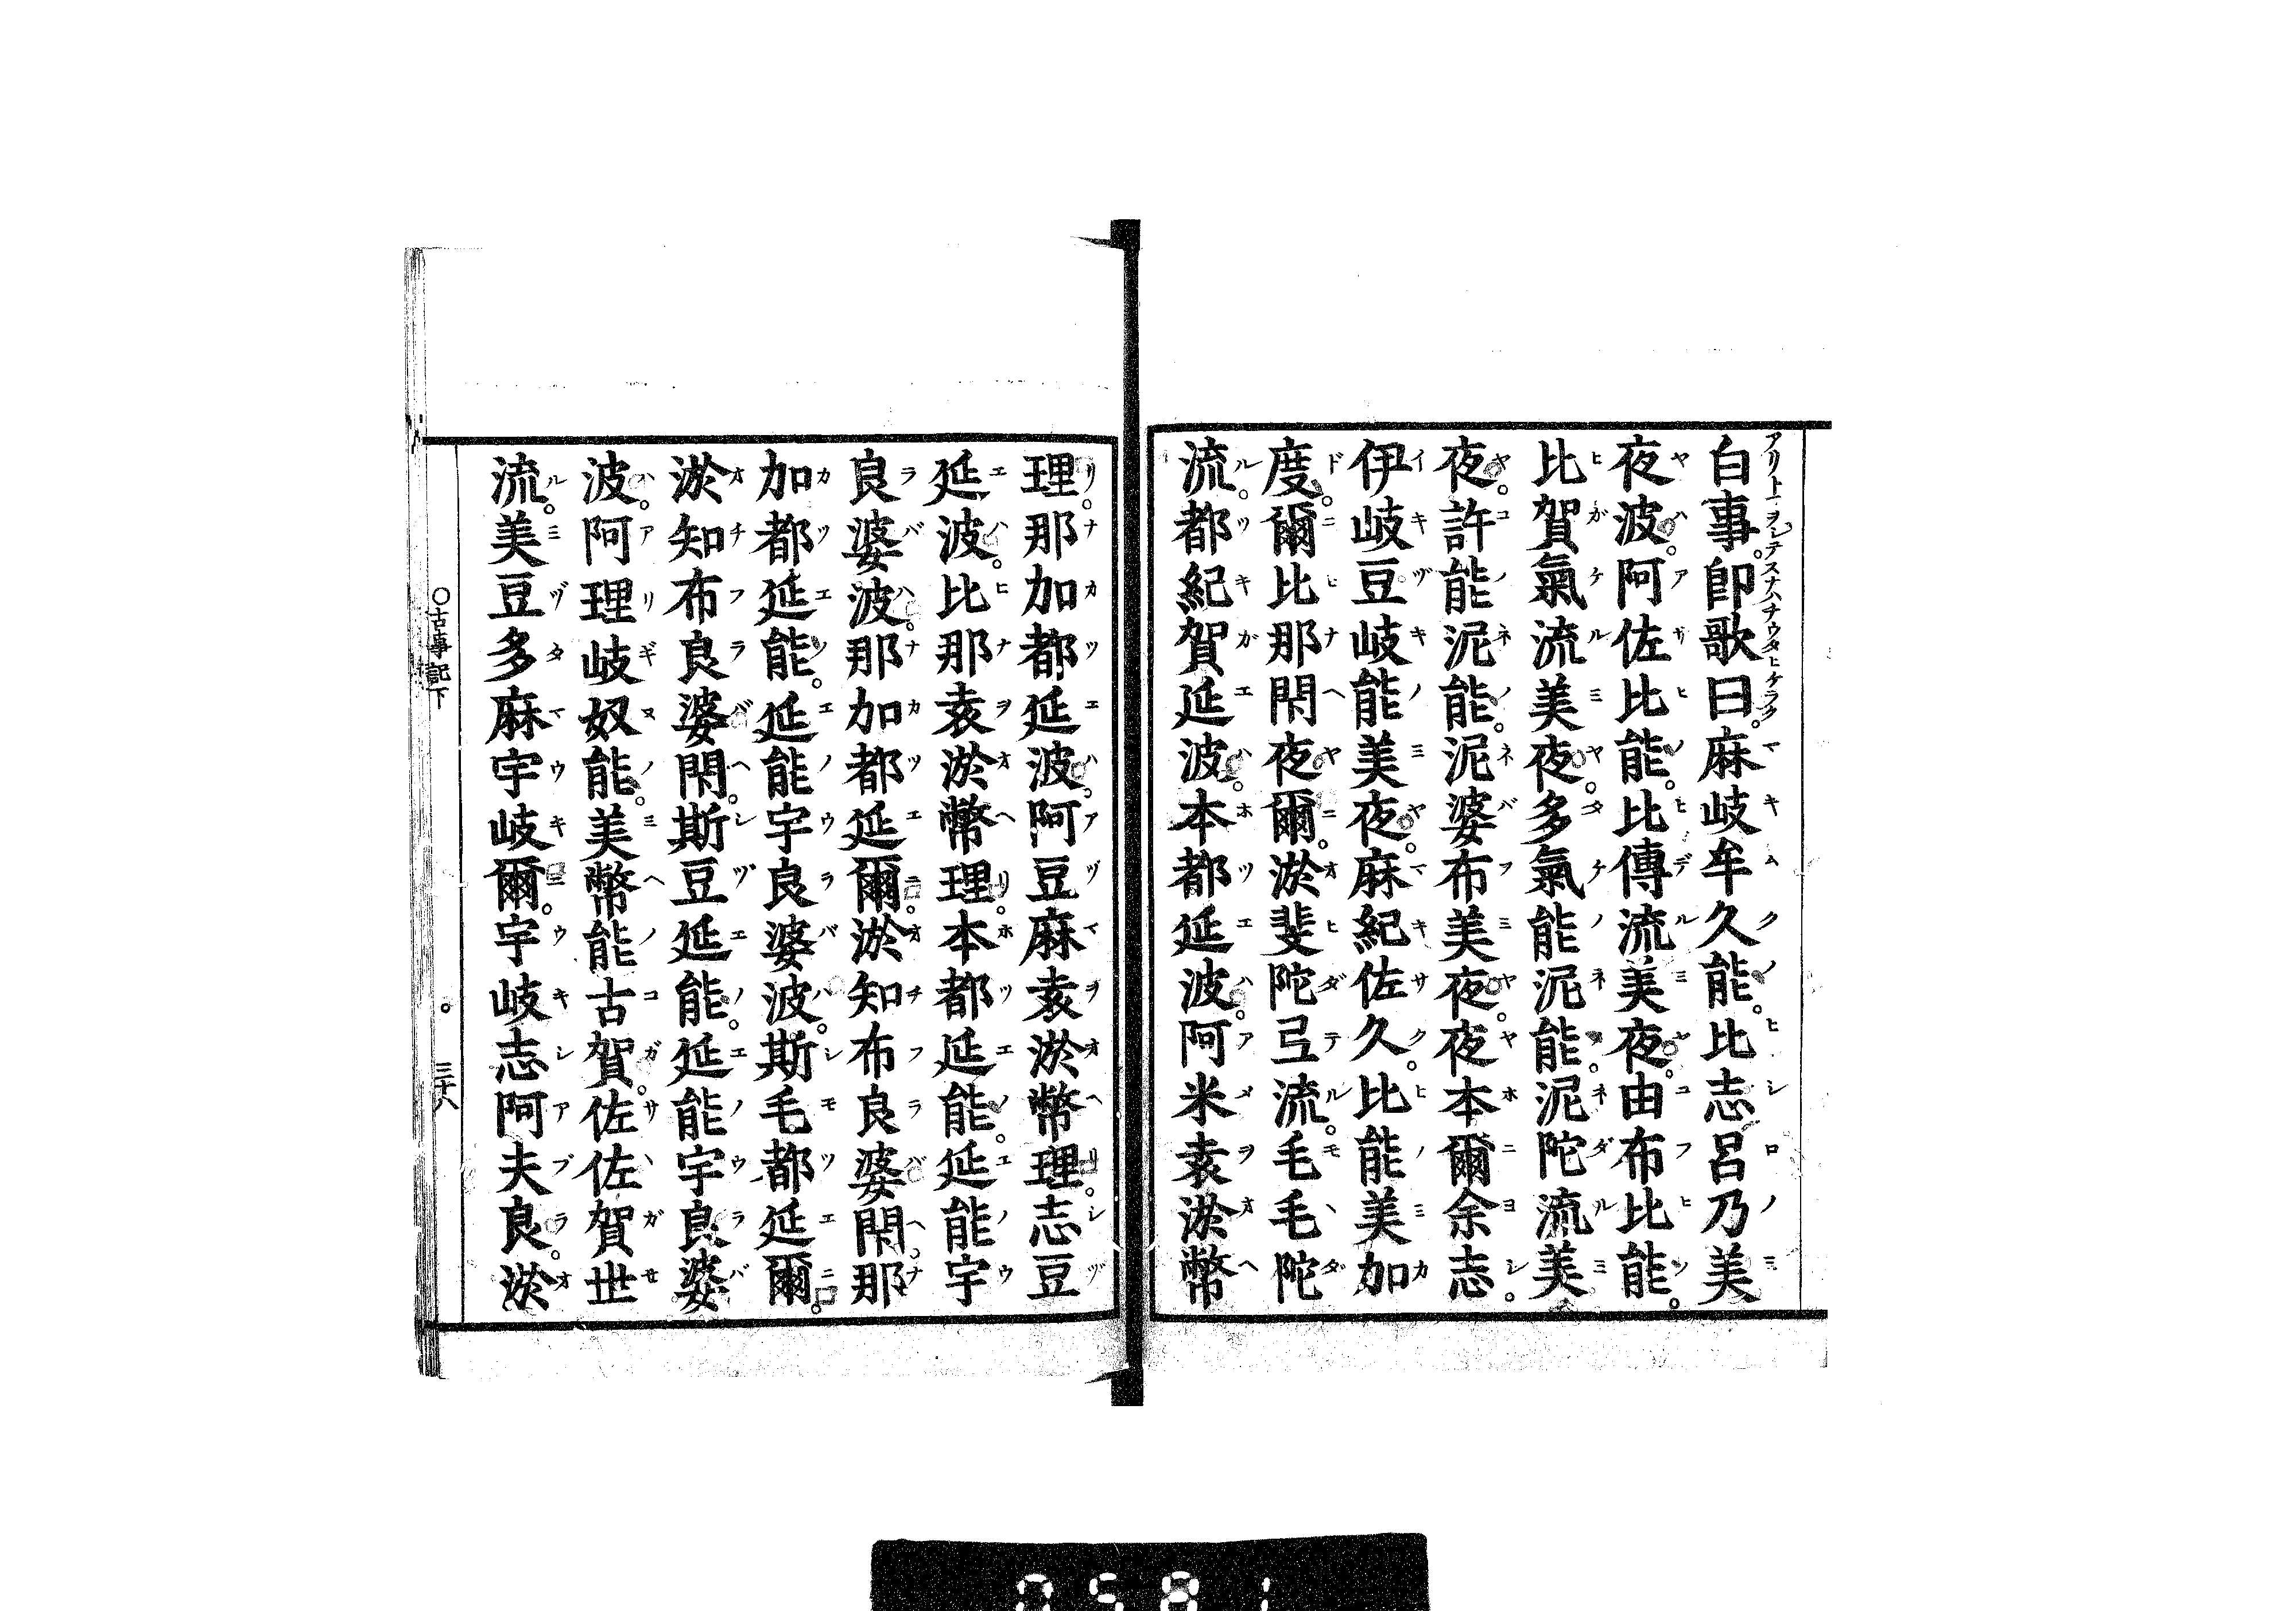 白事。卽歌曰。麻岐牟久能。比志呂乃美
夜波。阿佐比能。比傳流美夜。由布比能。
比賀氣流美夜。多氣能泥能。泥陀流美
夜。許能泥能。泥婆布美夜。夜本爾余志。
伊岐豆岐能美夜。麻紀佐久。比能美加
度。爾比那閇夜爾。淤斐陀弖流。毛毛陀
流。都紀賀延波。本都延波。阿米袁淤幣
理。那加都延波。阿豆麻袁淤幣理。志豆
延波。比那袁淤幣理。本都延能。延能宇
良婆波。那加都延爾。淤知布良婆閇。那
加都延能。延能宇良婆波。斯毛都延爾。
淤知布良婆閇。斯豆延能。延能宇良婆
波。阿理岐奴能。美幣能古賀。佐佐賀世
流。美豆多麻宇岐爾。宇岐志阿夫良。淤
○古事記下
三十八
0581